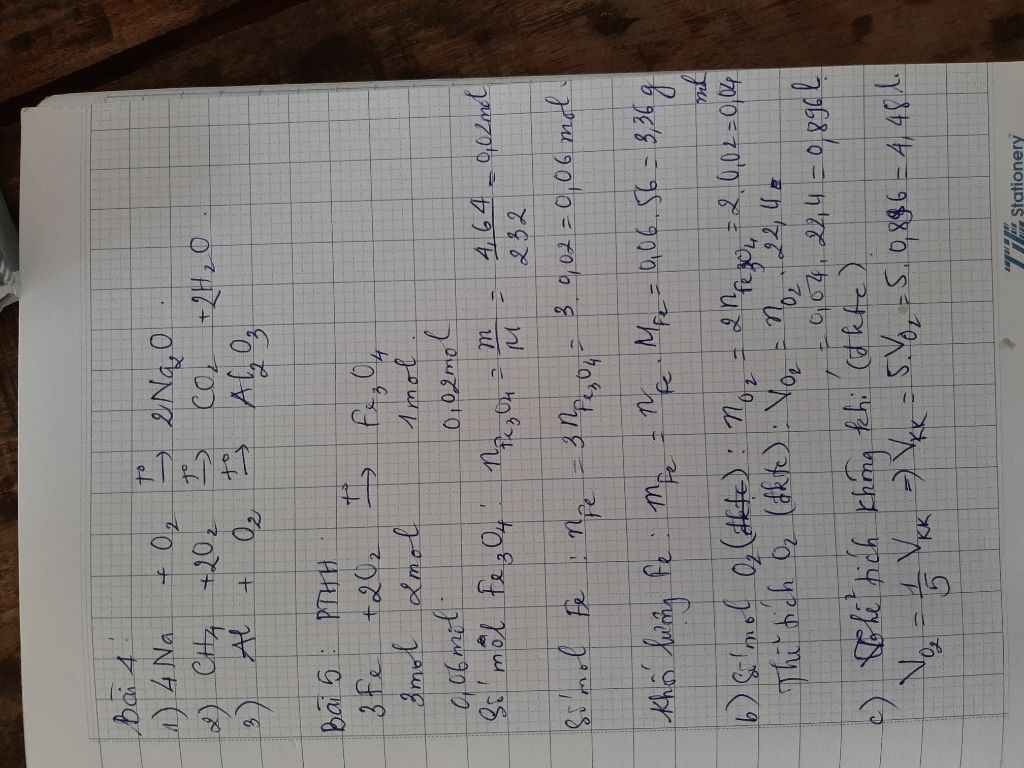 Bài 4:
1) 4Na + O2 t°→ 2Na2O.
2) CH4 + 2O2 t°→ CO2 + 2H2O.
3) Al + O2 t°→ Al2O3
Bài 5: PTHH
3Fe + 2O2 t°→ Fe3O4
3mol 2mol 1mol.
0,06mol. 0,02mol
Số mol Fe3O4: nFe3O4 = m/M = 4,64/232 = 0,02mol
Số mol Fe: nFe = 3nFe3O4 = 3.0,02 = 0,06mol.
Khối lượng Fe: mFe = nFe. MFe = 0,06.56 = 3,36g
b) Số mol O2 (đktc): nO2 = 2nFe3O4 = 2.0,02 = 0,04 mol
Thể tích O2 (đktc): VO2 = nO2. 22,4
= 0,04.22,4 = 0,896l.
c) Thể tích không khí (đktc)
VO2 = 1/5 VKK => VKK = 5.VO2 = 5.0,896 = 4,48l
Stationery